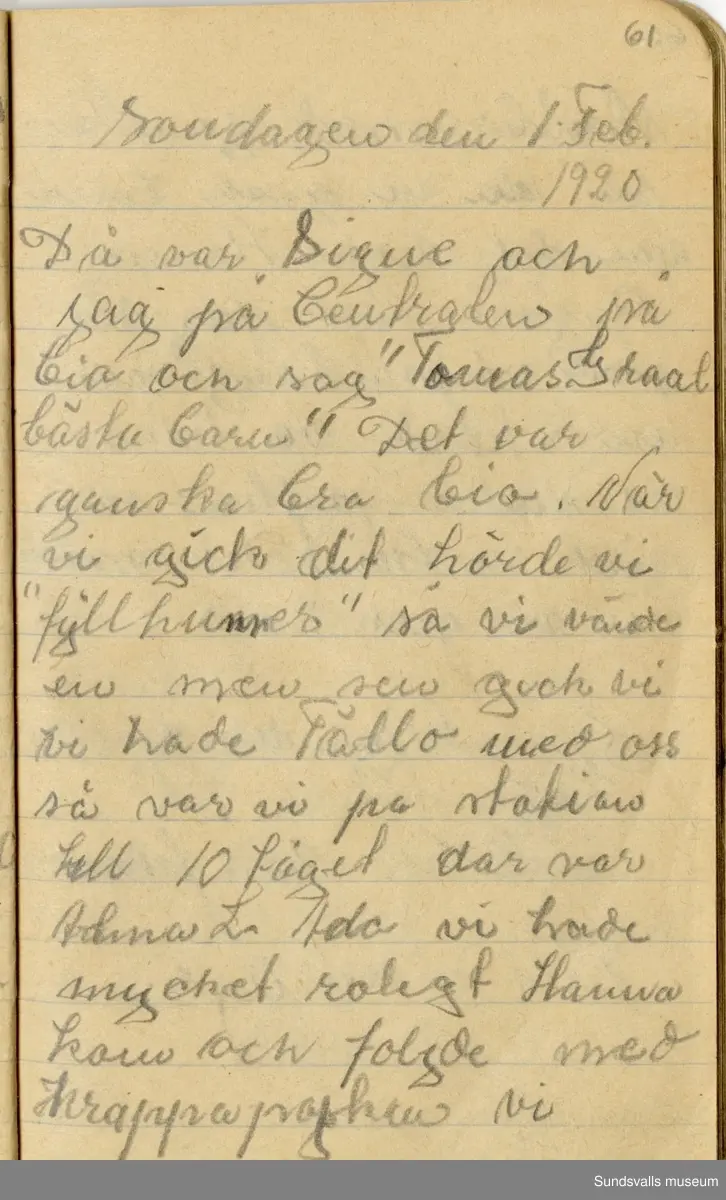 61
Söndagen den 1 Feb.
1920
Då var Signe och
jag på Centralen på
bio och sag "Tomas Graal
bästa barn" Det var
ganska bra bio. När
vi gick dit hörde vi
"fyllhumer" så vi vände
en men sen gick vi
vi hade Fällo med oss
så var vi pa station
till 10 tåget dar var
Alma L. Ada vi hade
mycket roligt Hanna
kom och folgde med
Krappapojken vi
Sundsvalls museum